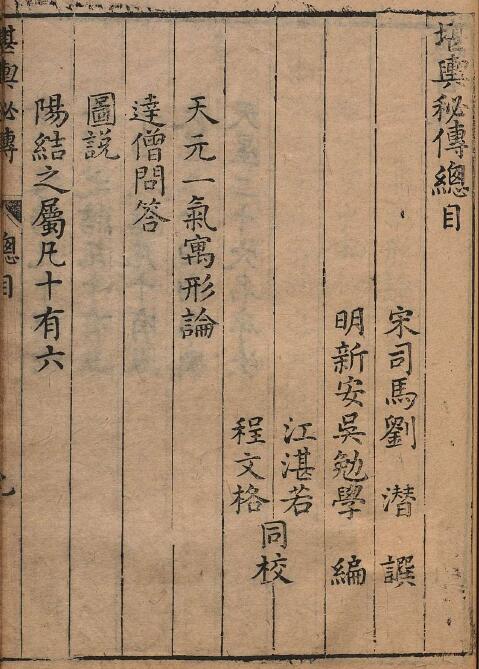 堪輿秘傳總目
宋司馬劉潛譔
明新安吳勉學編
江湛若
程文格
同校
天元一氣寓形論
達僧問答
圖說
陽結之屬凡十有六
堪輿秘傳
總目